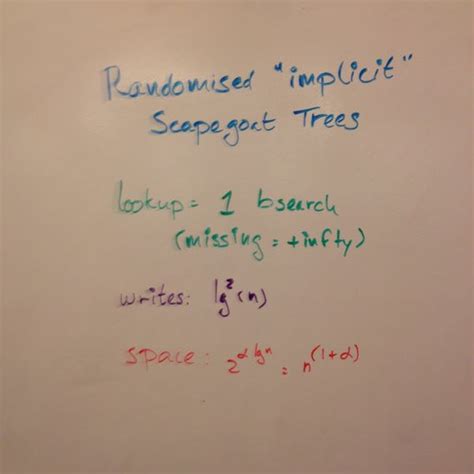 Randomised "implicit"
Scapegoat Trees
lookup = 1 bsearch
(missing = +infty)
writes: lg²(n)
space: 2^α lg n = n^(1+α)